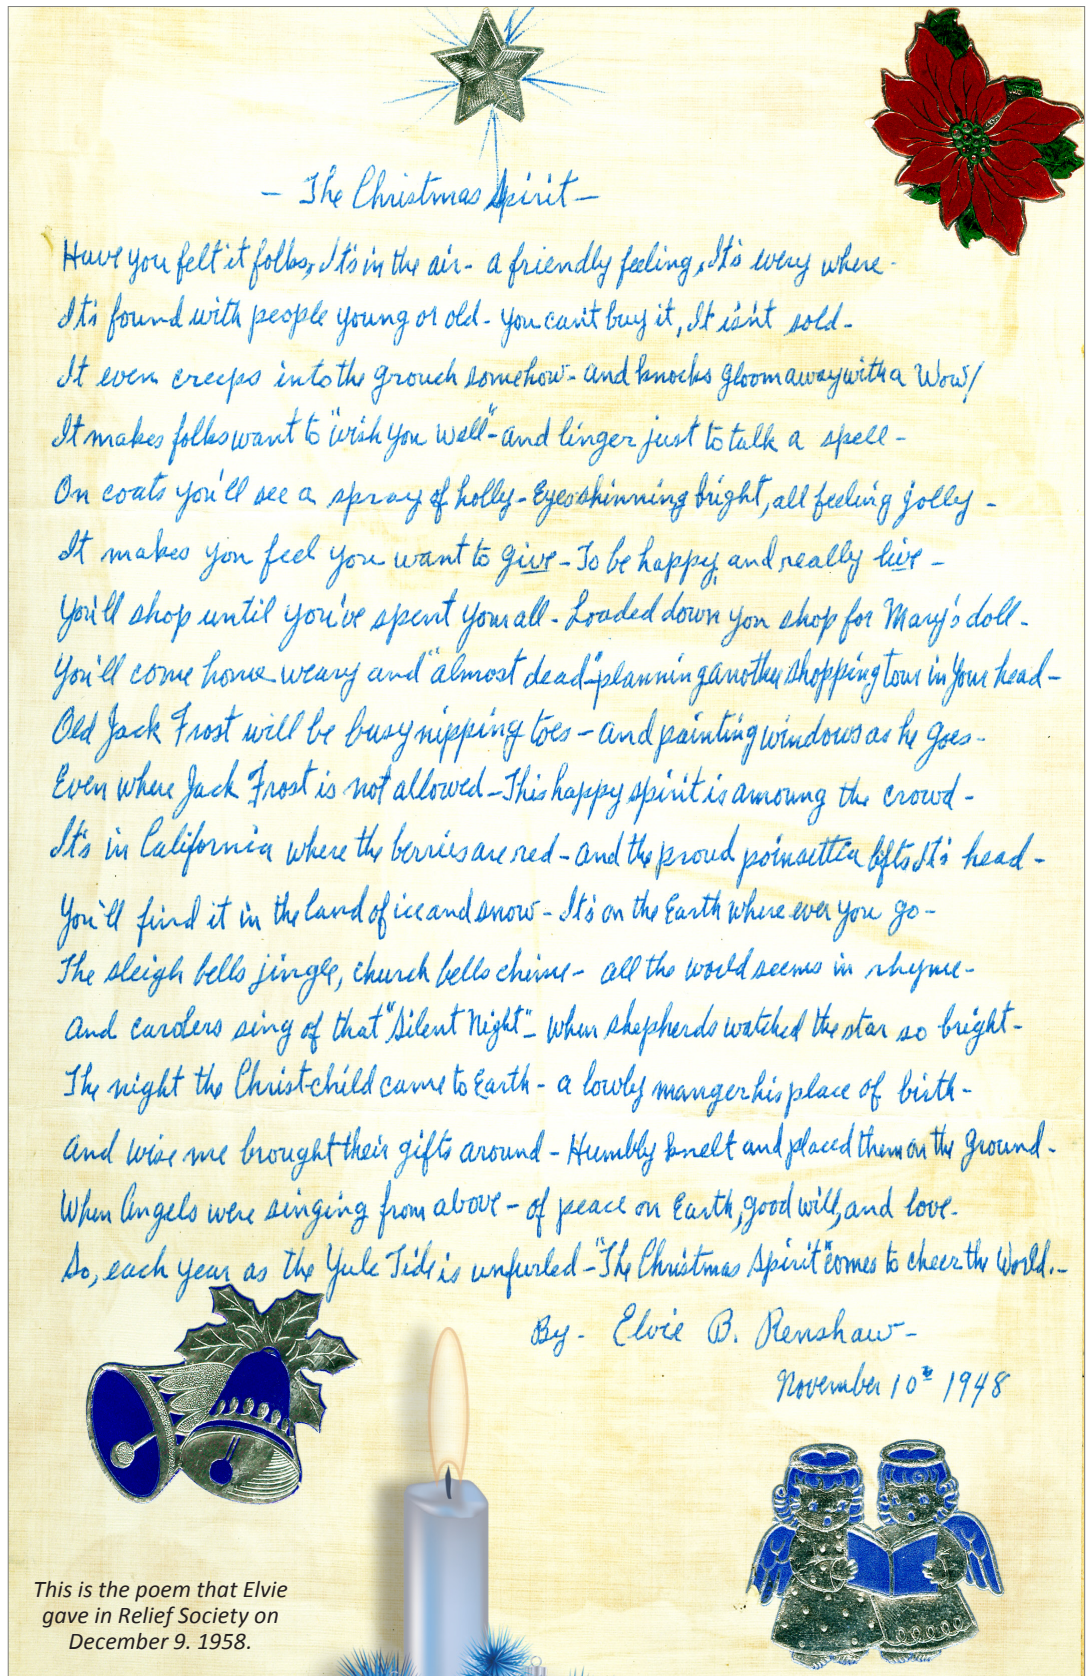 - The Christmas Spirit -
Have you felt it folks, It's in the air - a friendly feeling, It's every where -
It's found with people young or old - you can't buy it, It isn't sold -
It even creeps into the grouch somehow - and knocks gloom away with a Wow!
It makes folks want to "wish you well" - and linger just to talk a spell -
On coats you'll see a spray of holly - Eyes shinning bright, all feeling jolly -
It makes you feel you want to give - To be happy, and really live -
You'll shop until you've spent your all - Loaded down you shop for Mary's doll -
You'll come home weary and "almost dead" - planning another shopping tour in your head -
Old Jack Frost will be busy nipping toes - and painting windows as he goes -
Even where Jack Frost is not allowed - This happy spirit is amoung the crowd -
It's in California where the berries are red - and the proud poinsettia lifts It's head -
You'll find it in the land of ice and snow - It's on the Earth where ever you go -
The sleigh bells jingle, church bells chime - all the world seems in rhyme -
And carolers sing of that "Silent Night" - when shepherds watched the star so bright -
The night the Christ-child came to Earth - a lowly manger his place of birth -
And wise me brought their gifts around - Humbly knelt and placed them on the ground -
When Angels were singing from above - of peace on Earth, good will, and love -
So, each year as the Yule Tide is unfurled - "The Christmas Spirit" comes to cheer the World. -
By - Elvie B. Renshaw -
November 10th 1948
This is the poem that Elvie
gave in Relief Society on
December 9. 1958.